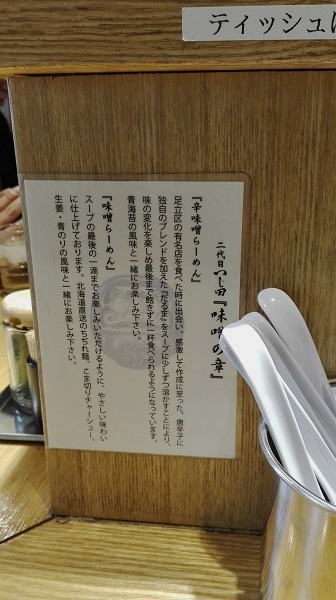 ティッシュは
二代目つじ田『味噌の章』
『辛味噌らーめん』
足立区の有名店を食べた時に出会い、感激して作成に至った、唐辛子に
独自のブレンドを加えた『だるま』をスープに少しずつ溶かすことにより、
味の変化を楽しめ最後まで飽きずに一杯食べられるようになっています。
青海苔の風味と一緒にお楽しみ下さい。
『味噌らーめん』
スープの最後の一滴までお楽しみいただけるように、やさしい味わい
に仕上げております。北海道直送のちぢれ麺、こま切りチャーシュー、
生姜・青のりの風味と一緒にお楽しみ下さい。